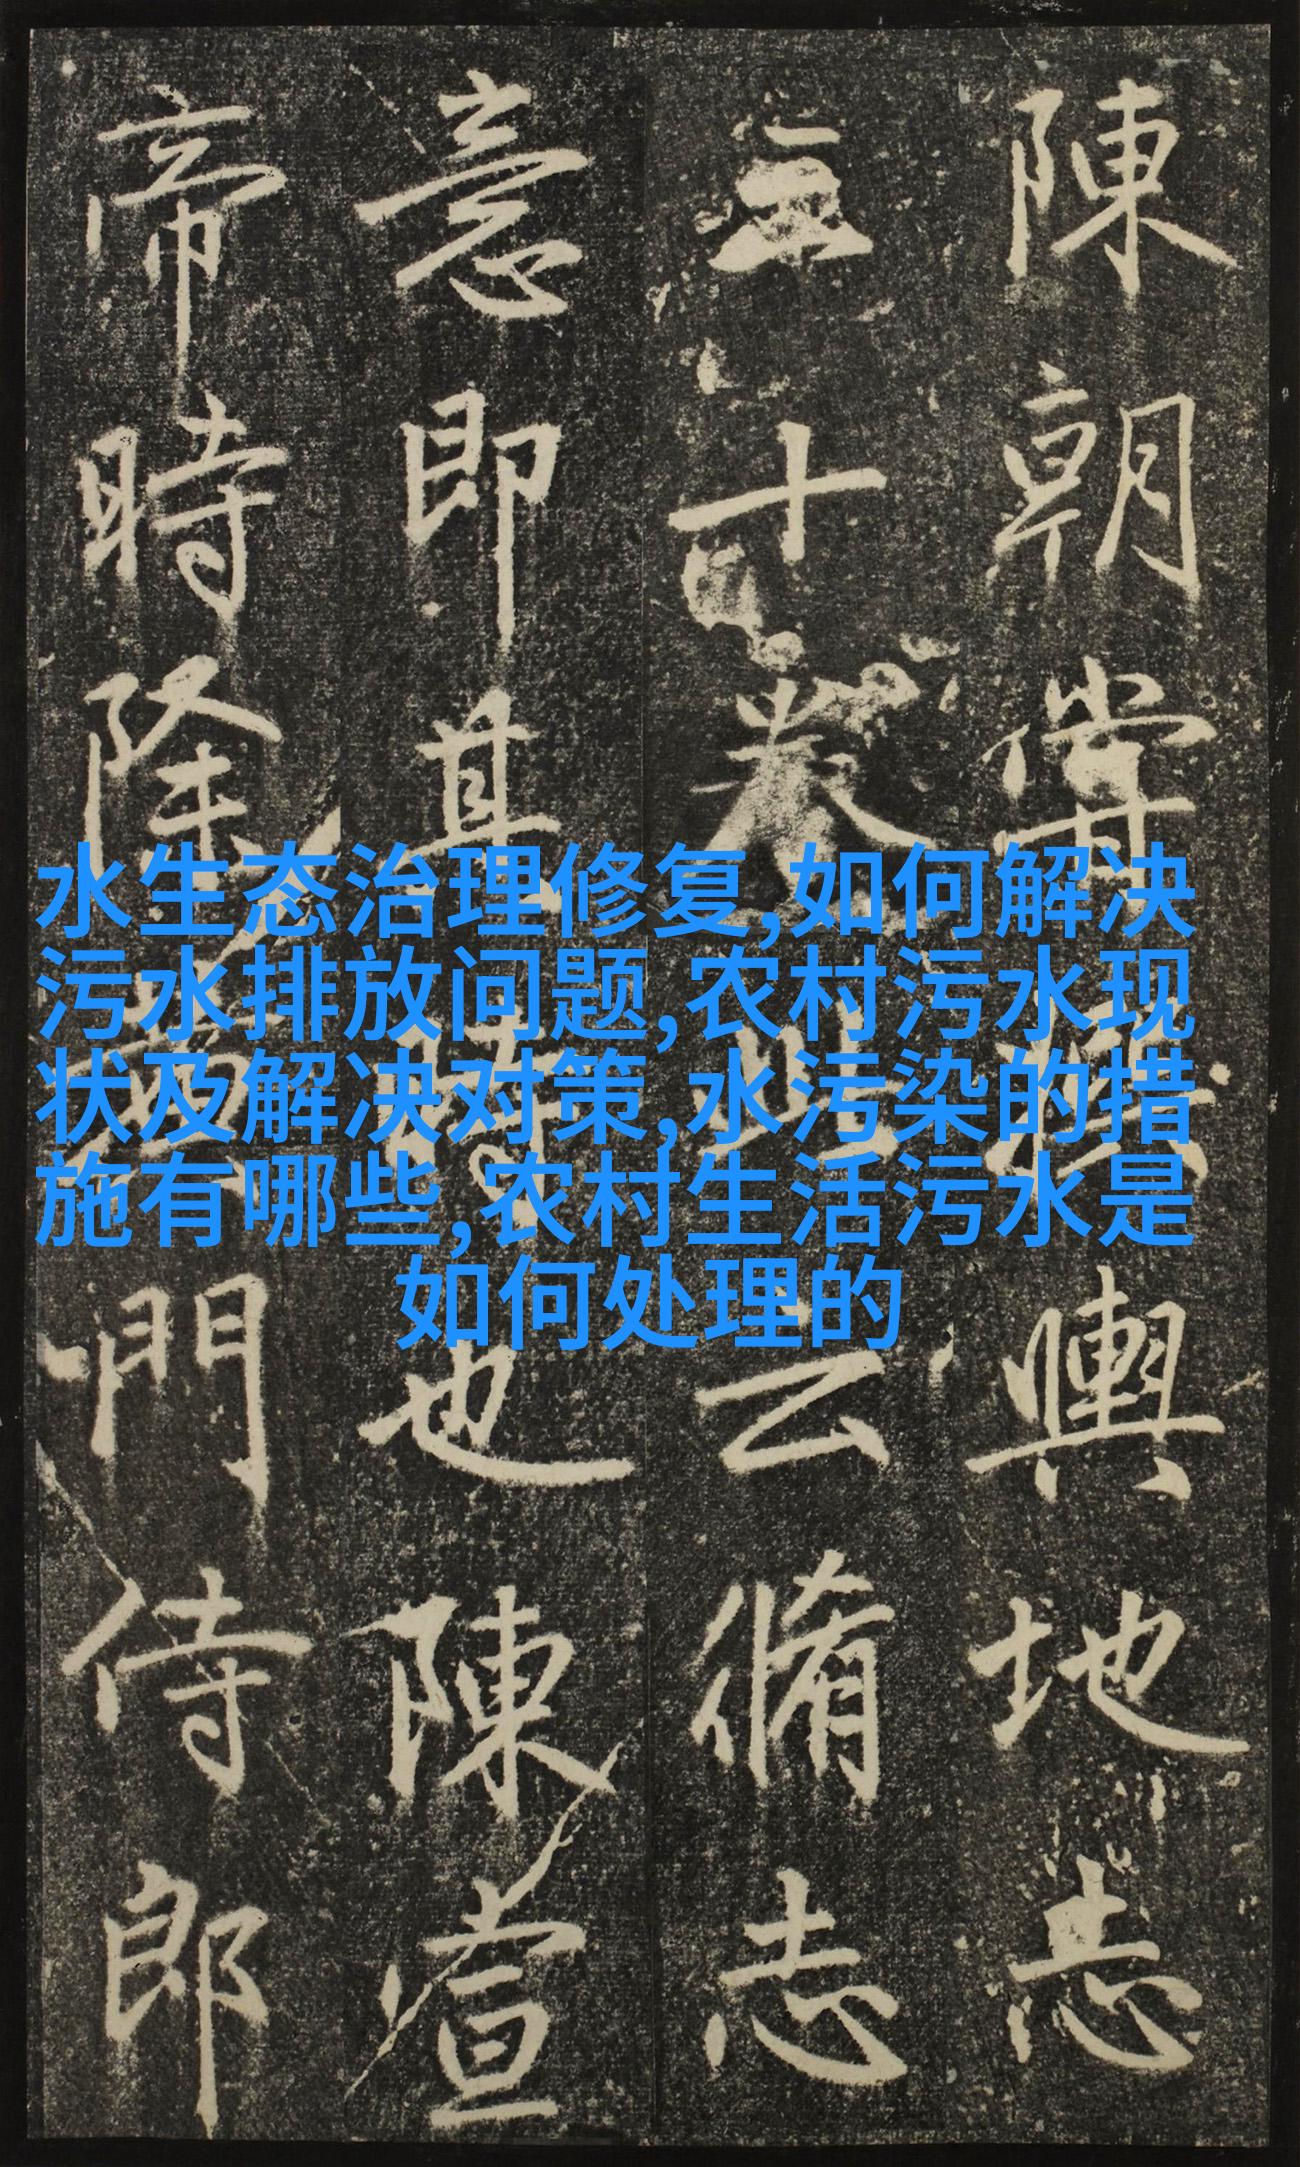 陳朝甞輿地志
三十卷此云脩志
意即其時也陳宣
帝時除黃門侍郎
水生态治理修复,如何解决
污水排放问题,农村污水现
状及解决对策,水污染的措
施有哪些,农村生活污水是
如何处理的